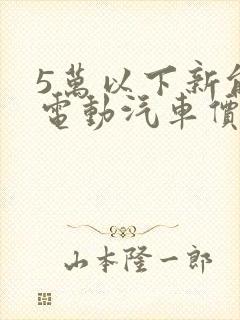 5萬以下新能
電動汽車價
山本隆一郎